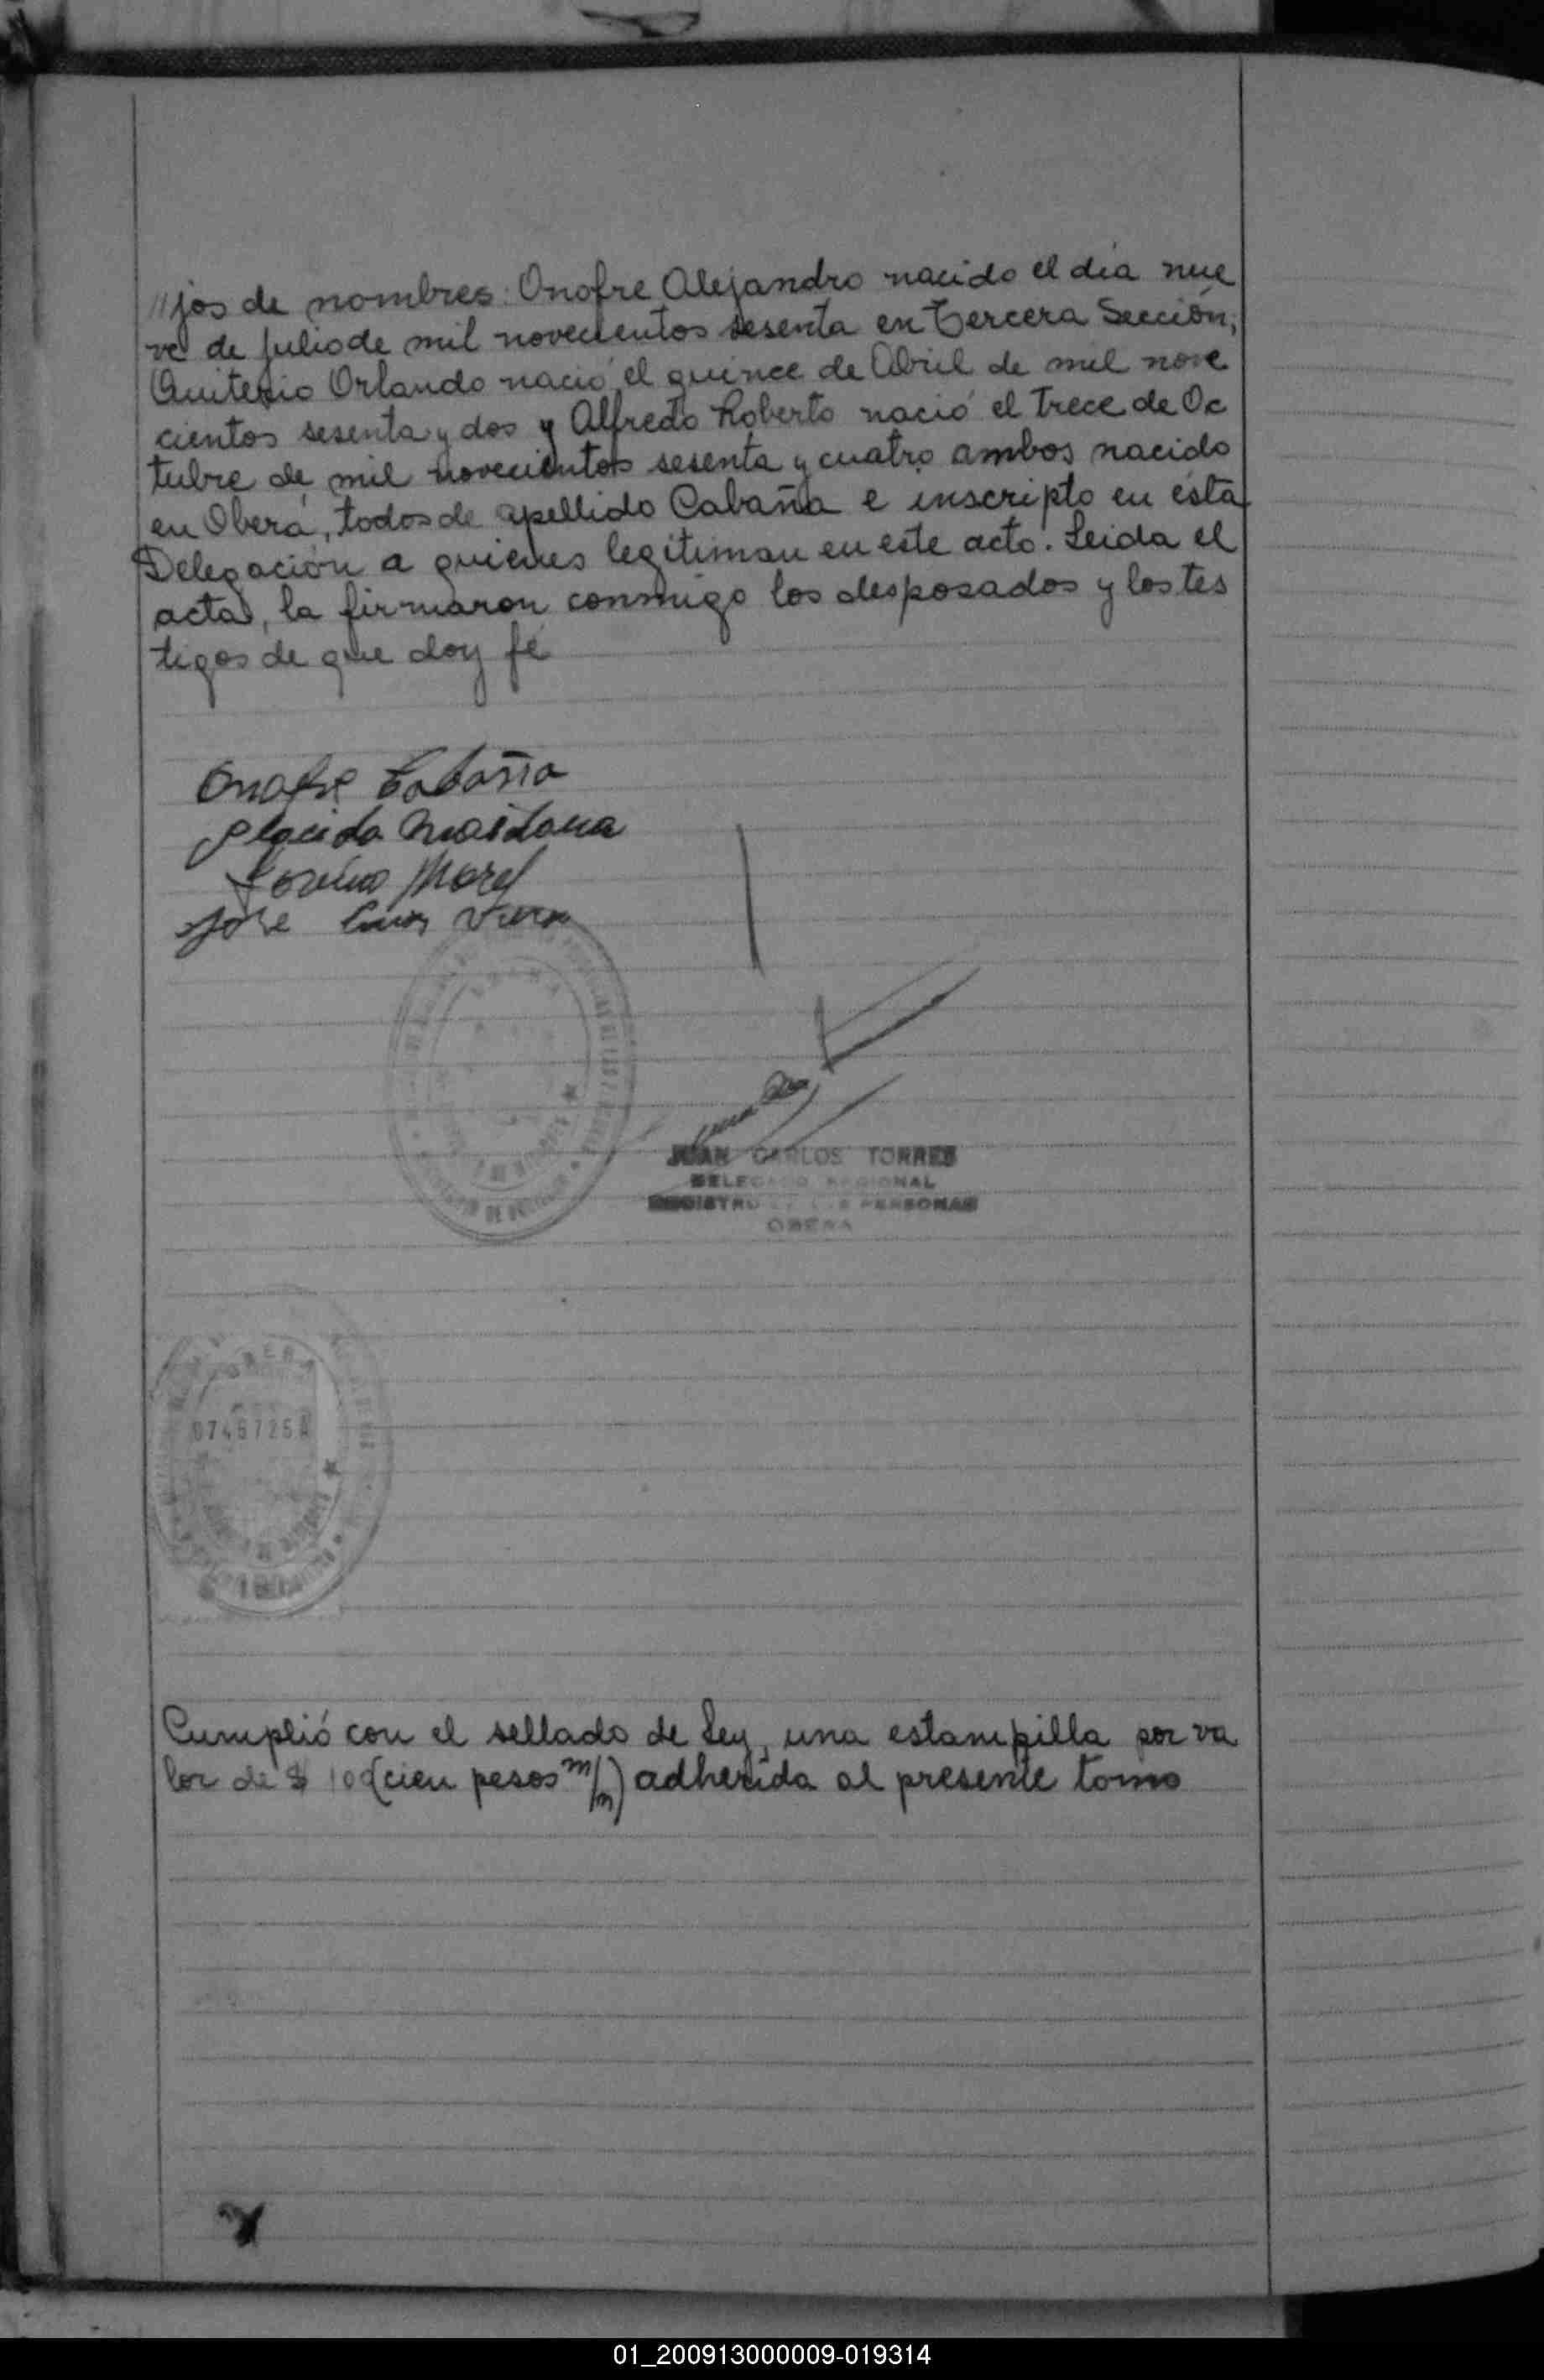 //jos de nombres: Onofre Alejandro nacido el día nue
ve de Julio de mil novecientos sesenta en Tercera Sección,
Quiterio Orlando nació el quince de Abril de mil nove
cientos sesenta y dos y Alfredo Roberto nació el trece de Oc
tubre de mil novecientos sesenta y cuatro ambos nacido
en Oberá, todos de apellido Cabaña e inscripto en ésta
Delegación a quienes legitiman en este acto. Leida el
acta, la firmaron conmigo los desposados y los tes
tigos de que doy fé
Onofre Cabaña
Placida Maidana
Morel
Jose
JUAN CARLOS TORRES
DELEGADO REGIONAL
REGISTRO DE LAS PERSONAS
OBERA
OBERA
Cumplió con el sellado de Ley, una estampilla por va
lor de $ 100 (cien pesos m/n) adherida al presente tomo
01_200913000009-019314